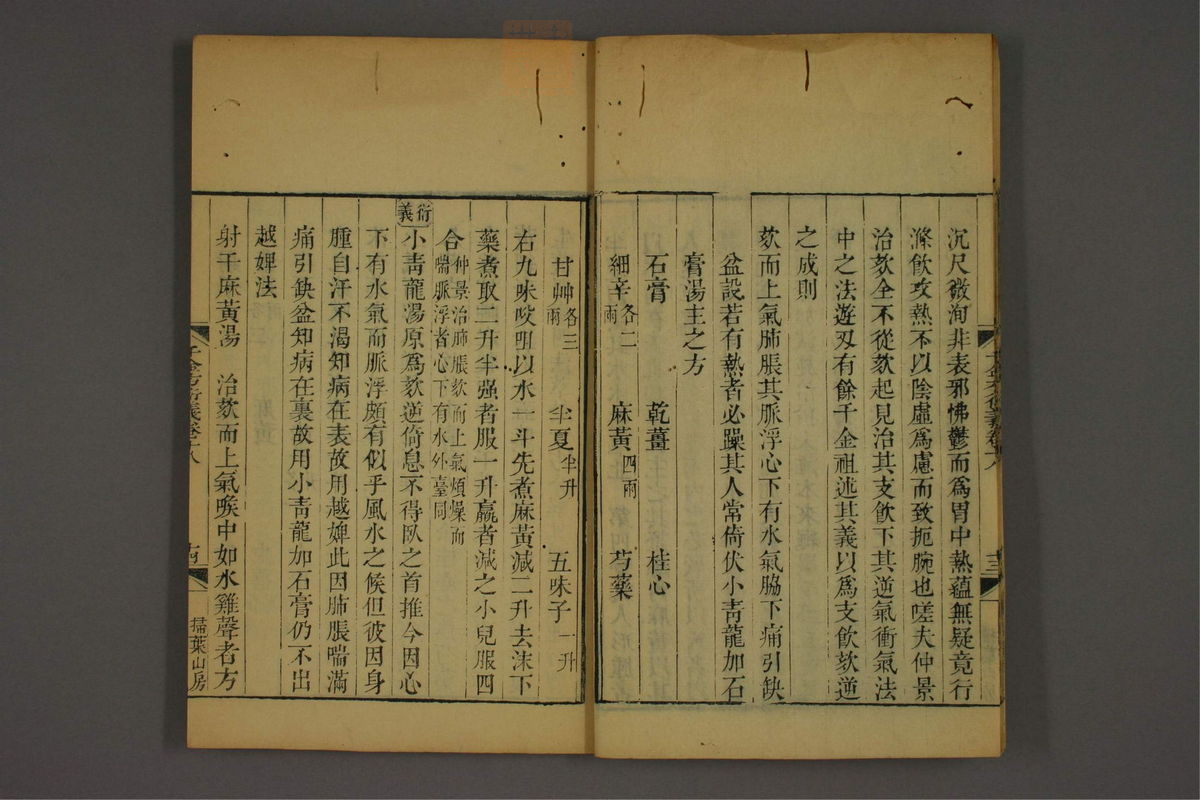 沉尺微洵非表邪怫鬱而爲胃中熱蘊無疑竟行
滌飲攻熱不以陰虛爲慮而致扼腕也嗟夫仲景
治欬全不從欬起見治其支飲下其逆氣衝氣法
中之法遊刃有餘千金祖述其義以爲支飲欬逆
之成則
欬而上氣肺脹其脈浮心下有水氣脇下痛引缺
盆設若有熱者必躁其人常倚伏小靑龍加石
膏湯主之方
石膏 乾薑 桂心
細辛各二兩 麻黃四兩 芍藥
甘艸各三兩 半夏半升 五味子一升
右九味㕮咀以水一斗先煮麻黃減二升去沫下
藥煮取二升半强者服一升羸者減之小兒服四
合仲景治肺脹欬而上氣煩燥而
喘脈浮者心下有水外臺同
衍義
小靑龍湯原爲欬逆倚息不得臥之首推今因心
下有水氣而脈浮頗有似乎風水之候但彼因身
腫自汗不渴知病在表故用越婢此因肺脹喘滿
痛引缺盆知病在裏故用小靑龍加石膏仍不出
越婢法
射干麻黃湯 治欬而上氣喉中如水雞聲者方
千金方衍義卷十八
十四
掃葉山房